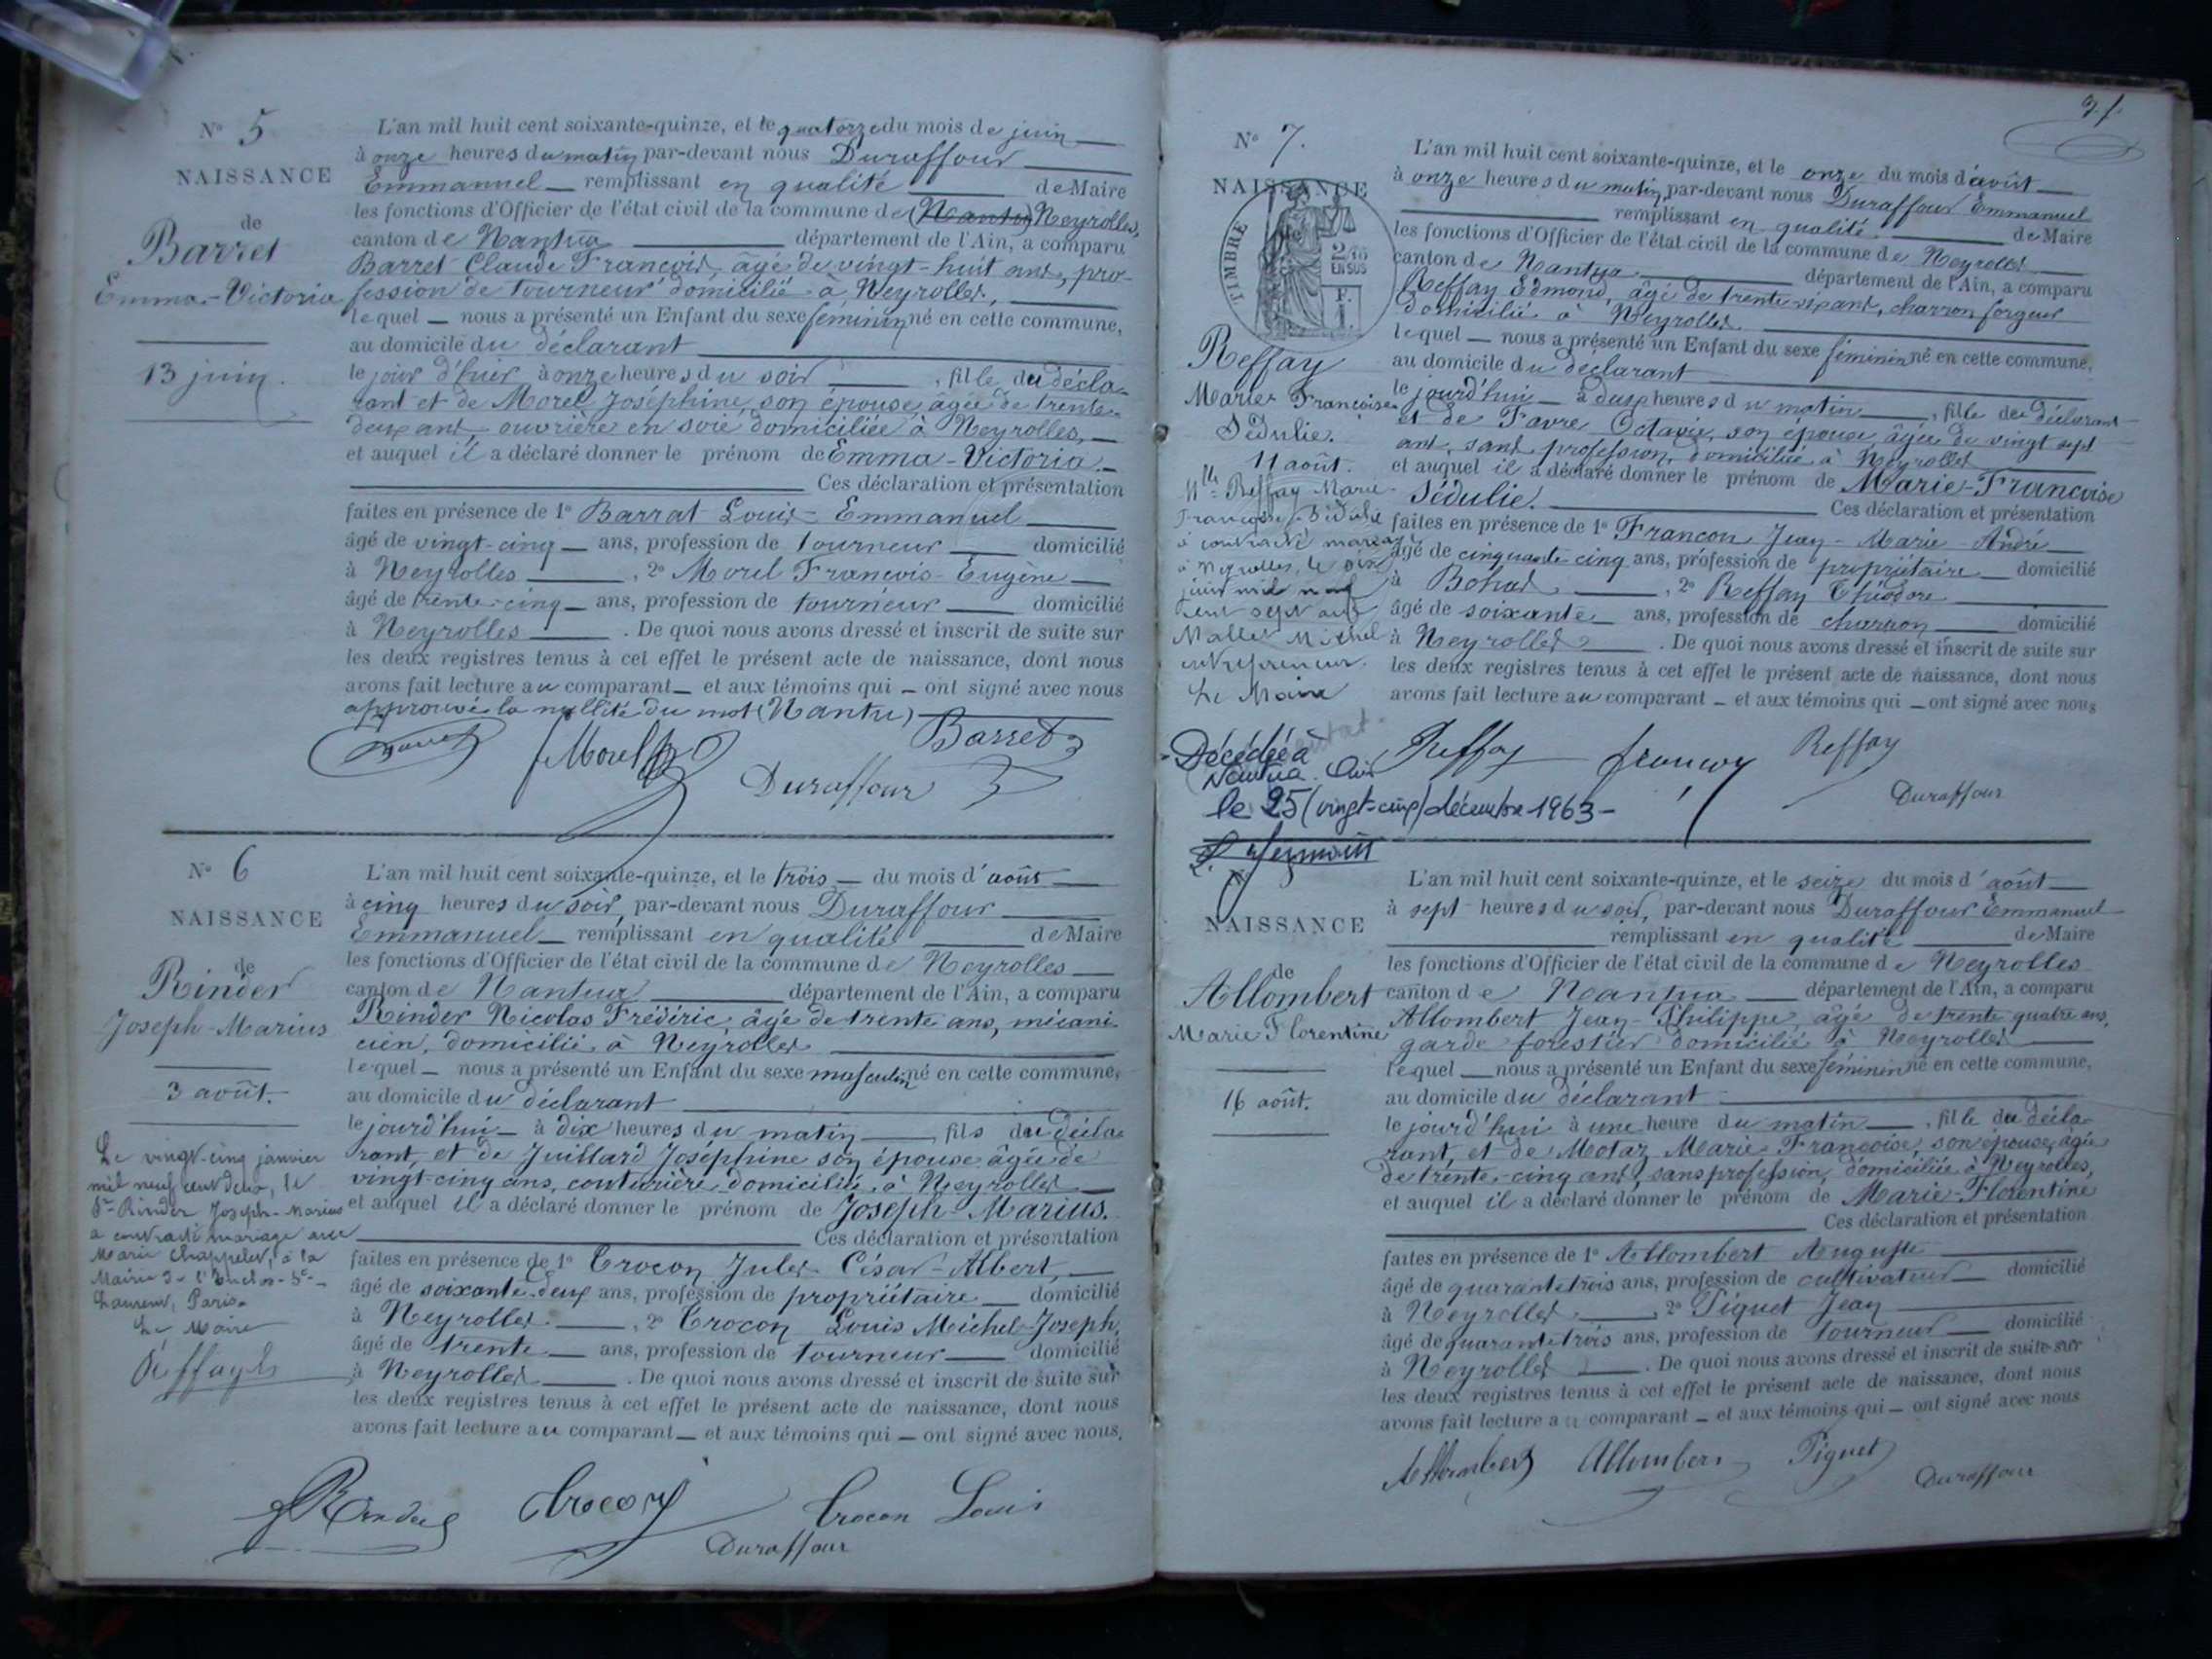 N° 5
NAISSANCE
de
Barret
Emma-Victoria
13 juin.
L'an mil huit cent soixante-quinze, et le quatorze du mois de juin
à onze heures du matin par-devant nous Duraffour
Emmanuel remplissant en qualité de Maire
les fonctions d'Officier de l'état civil de la commune de (Nantu) Neyrolles,
canton de Nantua département de l'Ain, a comparu
Barret Claude François, âgé de vingt-huit ans, pro-
fession de tourneur domicilié à Neyrolles,
lequel nous a présenté un Enfant du sexe féminin né en cette commune,
au domicile du déclarant
le jour d'hier à onze heures du soir, fille du décla-
rant et de Morel Joséphine, son épouse, âgée de trente-
deux ans, ouvrière en soie, domiciliée à Neyrolles,
et auquel il a déclaré donner le prénom de Emma-Victoria.
Ces déclaration et présentation
faites en présence de 1° Barrat Louis-Emmanuel
âgé de vingt-cinq ans, profession de tourneur domicilié
à Neyrolles, 2° Morel François-Eugène
âgé de trente-cinq ans, profession de tourneur domicilié
à Neyrolles. De quoi nous avons dressé et inscrit de suite sur
les deux registres tenus à cet effet le présent acte de naissance, dont nous
avons fait lecture au comparant et aux témoins qui ont signé avec nous
approuvé la nullité du mot (Nantu)
Morel Barret
Duraffour
N° 6
NAISSANCE
de
Rinder
Joseph-Marius
3 août.
Le vingt-cinq janvier
mil neuf cent deux, le
Sr Rinder Joseph-Marius
a contracté mariage avec
Marie Chappelet, à la
Mairie
Laurent, Paris.
Le Maire
Reffay
L'an mil huit cent soixante-quinze, et le trois du mois d'août
à cinq heures du soir, par-devant nous Duraffour
Emmanuel remplissant en qualité de Maire
les fonctions d'Officier de l'état civil de la commune de Neyrolles
canton de Nantua département de l'Ain, a comparu
Rinder Nicolas Frédéric, âgé de trente ans, mécani-
cien, domicilié à Neyrolles
lequel nous a présenté un Enfant du sexe masculin né en cette commune,
au domicile du déclarant
le jourd'hui à dix heures du matin, fils du décla-
rant, et de Juillard Joséphine son épouse âgée de
vingt-cinq ans, couturière domiciliée à Neyrolles
et auquel il a déclaré donner le prénom de Joseph-Marius.
Ces déclaration et présentation
faites en présence de 1° Crocon Jules-César-Albert,
âgé de soixante-deux ans, profession de propriétaire domicilié
à Neyrolles, 2° Crocon Louis Michel-Joseph,
âgé de trente ans, profession de tourneur domicilié
à Neyrolles. De quoi nous avons dressé et inscrit de suite sur
les deux registres tenus à cet effet le présent acte de naissance, dont nous
avons fait lecture au comparant et aux témoins qui ont signé avec nous.
Rinder Crocon Crocon Louis
Duraffour
N° 7.
NAISSANCE
TIMBRE
Reffay
Marie Françoise
Sédulie.
11 août.
Mlle Reffay Marie-
Françoise-Sédulie
a contracté mariage
à Neyrolles, le dix
juin mil neuf
cent sept avec
Mallet Michel
entrepreneur.
Le Maire
Décédée à
Nantua Ain
le 25 (vingt-cinq) décembre 1963
L'an mil huit cent soixante-quinze, et le onze du mois d'août
à onze heures du matin, par-devant nous Duraffour Emmanuel
remplissant en qualité de Maire
les fonctions d'Officier de l'état civil de la commune de Neyrolles
canton de Nantua département de l'Ain, a comparu
Reffay Edmond, âgé de trente six ans, charron forgeur
domicilié à Neyrolles
lequel nous a présenté un Enfant du sexe féminin né en cette commune,
au domicile du déclarant
le jourd'hui à deux heures du matin, fille du déclarant
et de Favre Octavie, son épouse, âgée de vingt sept
ans, sans profession, domiciliée à Neyrolles
et auquel il a déclaré donner le prénom de Marie-Françoise
Sédulie. Ces déclaration et présentation
faites en présence de 1° Francon Jean-Marie-André
âgé de cinquante cinq ans, profession de propriétaire domicilié
à, 2° Reffay Théodore
âgé de soixante ans, profession de charron domicilié
à Neyrolles. De quoi nous avons dressé et inscrit de suite sur
les deux registres tenus à cet effet le présent acte de naissance, dont nous
avons fait lecture au comparant et aux témoins qui ont signé avec nous
Reffay Francon Reffay
Duraffour
NAISSANCE
de
Allombert
Marie Florentine
16 août.
L'an mil huit cent soixante-quinze, et le seize du mois d'août
à sept heures du soir, par-devant nous Duraffour Emmanuel
remplissant en qualité de Maire
les fonctions d'Officier de l'état civil de la commune de Neyrolles
canton de Nantua département de l'Ain, a comparu
Allombert Jean-Philippe âgé de trente quatre ans,
garde forestier domicilié à Neyrolles
lequel nous a présenté un Enfant du sexe féminin né en cette commune,
au domicile du déclarant
le jourd'hui à une heure du matin, fille du décla-
rant, et de Motaz Marie Françoise, son épouse, âgée
de trente-cinq ans, sans profession, domiciliée à Neyrolles,
et auquel il a déclaré donner le prénom de Marie-Florentine
Ces déclaration et présentation
faites en présence de 1° Allombert Auguste
âgé de quarante trois ans, profession de cultivateur domicilié
à Neyrolles, 2° Piquet Jean
âgé de quarante trois ans, profession de tourneur domicilié
à Neyrolles. De quoi nous avons dressé et inscrit de suite sur
les deux registres tenus à cet effet le présent acte de naissance, dont nous
avons fait lecture au comparant et aux témoins qui ont signé avec nous
Allombert Allombert Piquet
Duraffour